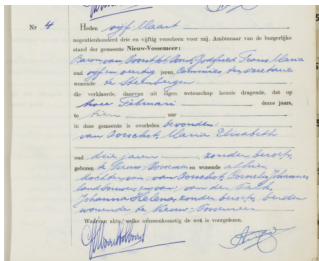 Nr 4
Heden vijf Maart
negentienhonderd drie en vijftig verscheen voor mij, Ambtenaar van de burgerlijke
stand der gemeente Nieuw-Vossemeer:
Frans Maria
oud vijf en veertig jaren,
wonende te Steenbergen
die verklaarde, daarvan uit eigen wetenschap kennis dragende, dat op
twee Februari dezes jaars,
te tien uur
in deze gemeente is overleden bevonden:
van Dorschot, Maria Elisabeth
oud drie jaren, zonder beroep,
geboren te Nieuw-Vossemeer en wonende alhier
dochter van van Dorschot, Cornelis Johannes
landbouwer, en van: van der
Johanna Helena, zonder beroep, beiden
wonende te Nieuw-Vossemeer
Waarvan akte, welke overeenkomstig de wet is voorgelezen.